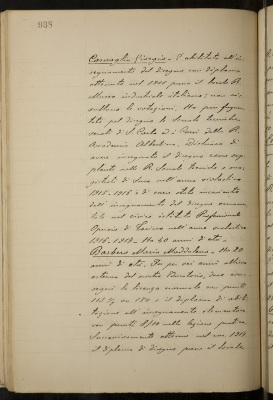 938
Caravaglio Giorgio - È abilitato all'in-
segnamento del disegno con diploma
ottenuto nel 1911 presso il locale R.
Museo industriale italiano; non ri-
sultano le votazioni. Ha pure frequen-
tato pel disegno le Scuole tecniche
serali di S. Carlo ed i Corsi della R.
Accademia Albertina. Dichiara di
avere insegnato il disegno come sup-
plente nelle R. Scuole tecniche
di Susa nell'anno scolastico
1915-1916 e di essere stato incaricato
dell'insegnamento del disegno ornamen-
tale nel civico istituto Professionale
Operaio di Torino nell'anno scolastico
1916-1917. Ha 40 anni di età.
Barbero Maria Maddalena. Ha 20
anni di età. Fu per sei anni allieva
esterna del nostro Educatorio, dove con-
seguì la licenza normale con punti
su 180 e il diploma di abili-
tazione all'insegnamento elementare
con punti 8/10 nella lezione pratica.
Successivamente ottenne nel 1917
il diploma di disegno presso il locale